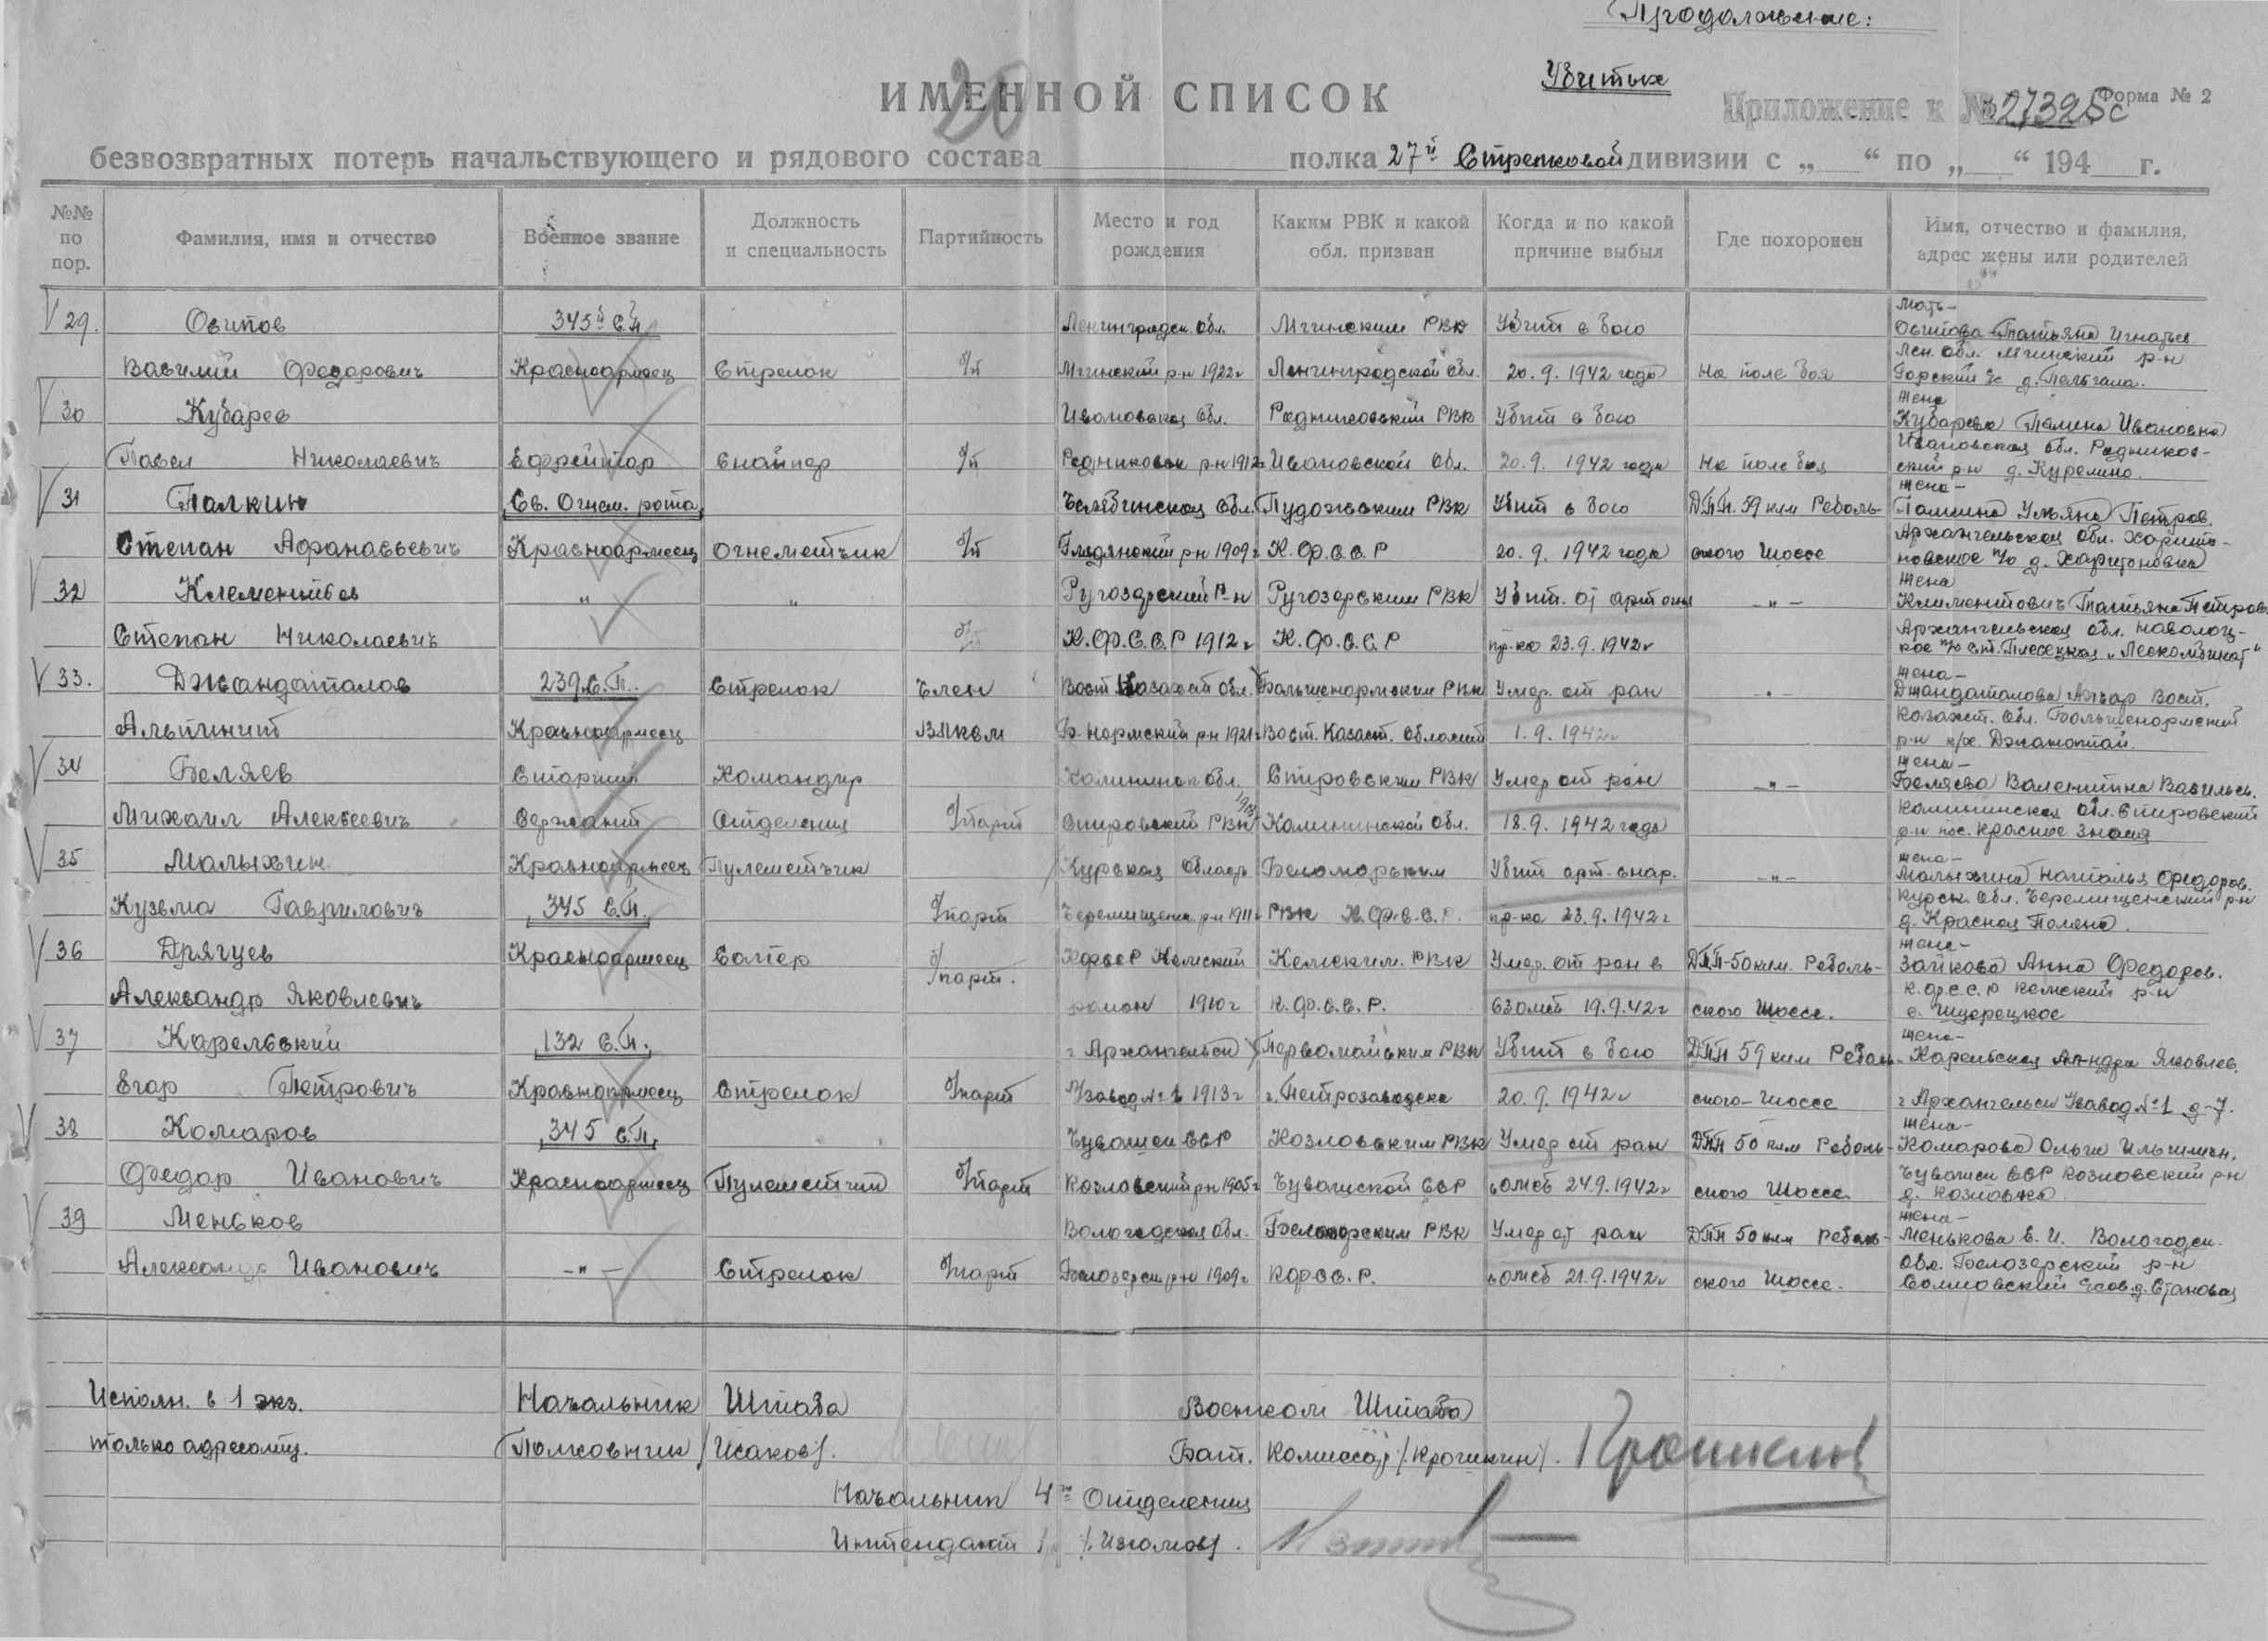 Продолжение:
Убитых
ИМЕННОЙ СПИСОК
20
Приложение к № 27325с
Форма № 2
безвозвратных потерь начальствующего и рядового состава полка 27й Стрелковой дивизии с „ “ по „ “ 194 г.
№№ по пор.
Фамилия, имя и отчество
Военное звание
Должность и специальность
Партийность
Место и год рождения
Каким РВК и какой обл. призван
Когда и по какой причине выбыл
Где похоронен
Имя, отчество и фамилия, адрес жены или родителей
мать-
29. Осипов 345й С.П. Ленинградск. обл. Мгинским РВК Убит в бою Осипова Татьяна Игнатьев.
Лен. обл. Мгинский р-н
Василий Федорович Красноармеец Стрелок б/п Мгинский р-н 1922г Ленинградской обл. 20.9.1942 года На поле боя Горский с/с д.
жена
30 Кубарев Ивановская обл. Родниковский РВК Убит в бою Кубарева Галина Ивановна
Ивановская обл. Родников-
Павел Николаевич Ефрейтор Снайпер б/п Родниковск р-н 1912г Ивановской обл. 20.9.1942 года На поле боя ский р-н д. Курелино.
жена-
31 Палкин Св. Огнем. рота Челябинская обл. Пудожским РВК Убит в бою ДПП. 59 клм Реболь- Палкина Ульяна Петров.
Архангельская обл. Харито-
Степан Афанасьевич Красноармеец Огнеметчик б/п Глядянский р-н 1909г К.Ф.С.С.Р 20.9.1942 года ского Шоссе новское п/о д. Харитоновка
жена
32 Клементьев " " Ругозерский р-н Ругозерским РВК Убит. от арт огня -"- Климентович Татьяна Петров.
Архангельская обл.
Степан Николаевич б/п К.Ф.С.С.Р 1912г К.Ф.С.С.Р пр-ка 23.9.1942г кое п/о ст. Плесецкая „Лескомбинат“
жена-
33. Джандаталов 239 С.П. Стрелок Член Вост. Казахст обл. Большенармским РВК Умер. от ран -"- Джандаталова Вост.
Казахст. обл. Большенармский
Альпинит Красноармеец ВЛКСМ Б. Нармский р-н 1921г Вост. Казахст. области 1.9.1942г р-н к/х.
жена-
34 Беляев Старший Командир Калининск обл. Спировским РВК Умер от ран -"- Беляева Валентина Васильев.
Калининская обл. Спировский
Михаил Алексеевич Сержант Отделения б/парт Спировский РВК Калининской обл. 18.9.1942 года р-н пос. Красное знамя
жена-
35 Малыхин Красноармеец Пулеметчик Курская область Беломорским Убит арт. снар. -"- Малыхина Наталья Федоров.
Курск. обл. Черемищенский р-н
Кузьма Гаврилович 345 С.П. б/парт Черемищенск р-н 1911г РВК К.Ф.С.С.Р. пр-ка 23.9.1942г д. Красная Поляна.
жена-
36 Дрягуев Красноармеец Сапер б/парт. КФССР Кемский Кемским. РВК Умер. от ран в ДПП-50клм. Реболь- Зайкова Анна Федоров.
К.Ф.С.С.Р Кемский р-н
Александр Яковлевич район 1910г К.Ф.С.С.Р. 63 омсб 19.9.42г ского Шоссе. с. Шуерецкое
жена-
37 Карельский 132 С.П. г. Архангельск Первомайским РВК Убит в бою ДПП 59 клм Реболь- Карельская Ал-ндра Яковлев.
Егор Петрович Красноармеец Стрелок б/парт 1913г г. Петрозаводска 20.9.1942г ского-Шоссе г Архангельск завод №1 д-7.
жена-
38 Комаров 345 С.П. Чувашск ССР Козловским РВК Умер от ран ДПП 50 клм Реболь- Комарова Ольга Ильинич.
Чувашск ССР Козловский р-н
Федор Иванович Красноармеец Пулеметчик б/парт Козловский р-н 1905г Чувашской ССР омсб 24.9.1942г ского Шоссе д. Козловка.
жена-
39 Меньков Вологодская обл. Белозерским РВК Умер от ран ДПП 50 клм Реболь- Менькова Е. И. Вологодск.
обл. Белозерский р-н
Александр Иванович -"- Стрелок б/парт Белозерск р-н 1909г КФССР. омсб 21.9.1942г ского Шоссе. с/сов. д. Становая
Исполн. в 1 экз. Начальник Штаба Военком Штаба
только адресату. Полковник /Исаков/. Бат. Комиссар /Крошкин/. Крошкин
Начальник 4го Отделения
Интендант /Изюмов/.